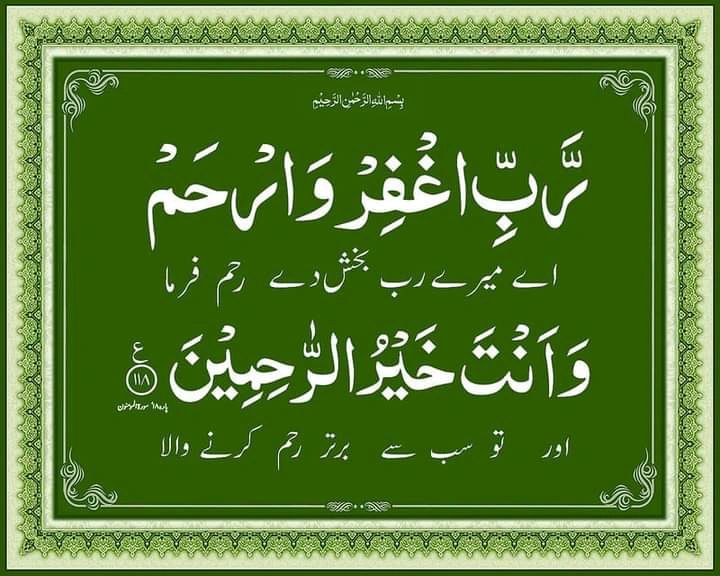 بِسْمِ اللهِ الرَّحْمٰنِ الرَّحِيْمِ
رَّبِّ اغْفِرْ وَارْحَمْ
اے میرے رب بخش دے رحم فرما
وَاَنْتَ خَيْرُ الرّٰحِمِيْنَ ع ١١٨
پارہ ١٨ سورۃ المومنون
اور تو سب سے برتر رحم کرنے والا